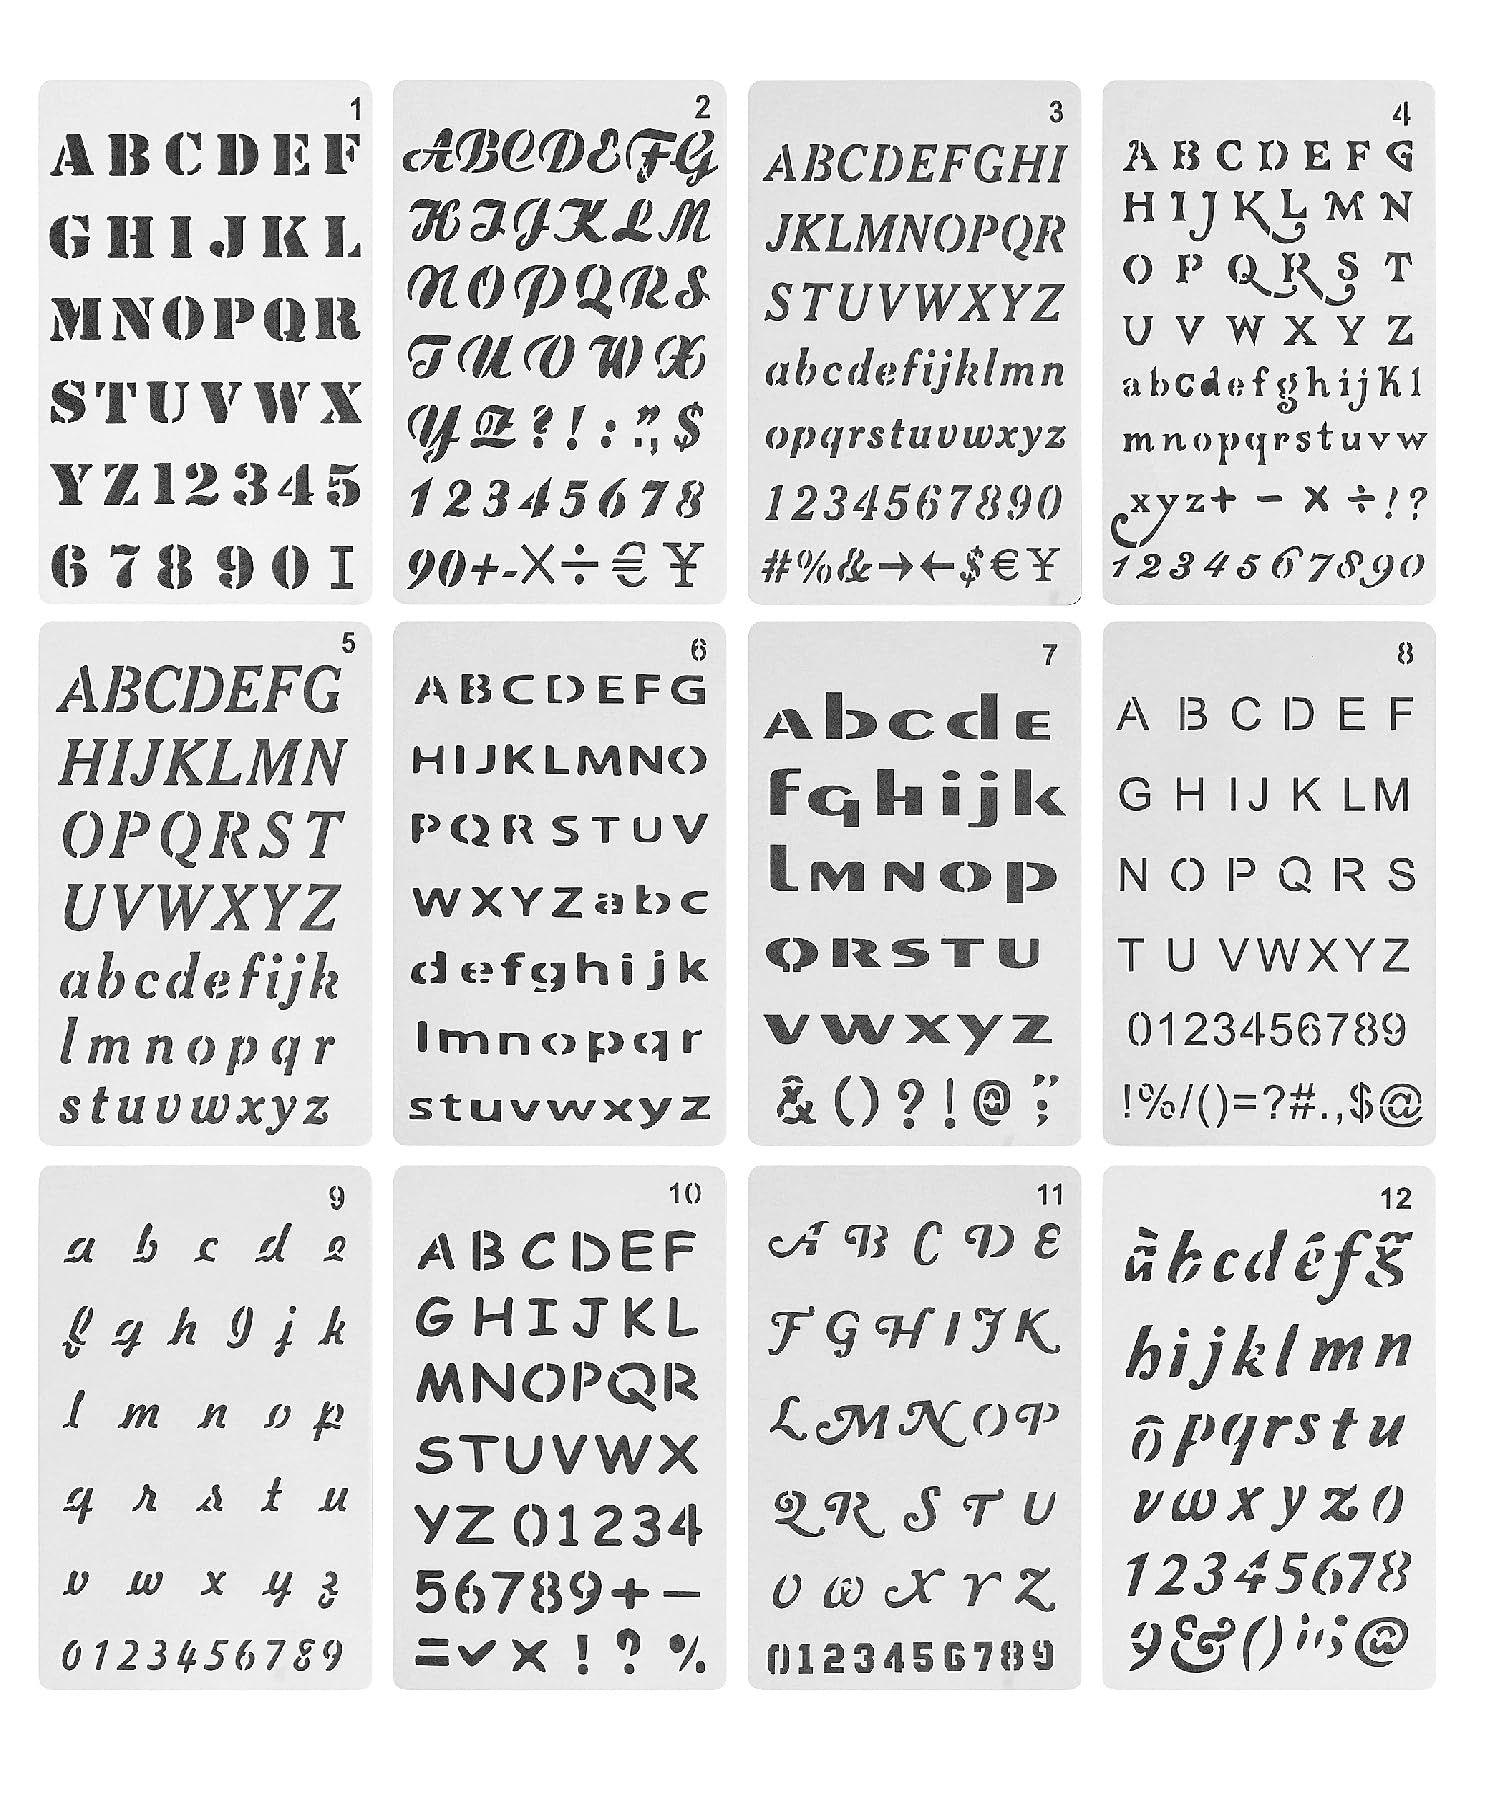 1
A B C D E F
G H I J K L
M N O P Q R
S T U V W X
Y Z 1 2 3 4 5
6 7 8 9 0 I
2
A B C D E F G
H I J K L M
N O P Q R S
T U V W X
Y Z ? ! : ” ; $
1 2 3 4 5 6 7 8
90+-×÷€¥
3
ABCDEFGHI
JKLMNOPQR
STUVWXYZ
abcdefijklmn
opqrstuvwxyz
1234567890
#%&→←$€¥
4
A B C D E F G
H I J K L M N
O P Q R S T
U V W X Y Z
abcdefghijkl
mnopqrstuvw
xyz+ − × ÷!?
1234567890
5
ABCDEFG
HIJKLMN
OPQRST
UVWXYZ
abcdefijk
lmnopqr
stuvwxyz
6
ABCDEFG
HIJKLMNO
PQRSTUV
WXYZabc
defghijk
lmnopqr
stuvwxyz
7
AbcdE
fghijk
lMNOp
QRSTU
vwxyz
&()?!@”;
8
A B C D E F
G H I J K L M
N O P Q R S
T U V W X Y Z
0123456789
!%/()=?#.,$@
9
a b c d e
f g h 9 j k
l m n o p
q r s t u
v w x y z
0123456789
10
A B C D E F
G H I J K L
MNOPQR
STUVWX
YZ 01234
56789+−
=✓× ! ? %
11
A B C D E
F G H I J K
L M N O P
Q R S T U
V W X Y Z
0123456789
12
àbcdéfg̃
hijklmn
ôpqrstu
vwxyz0
12345678
9&()¡!;@